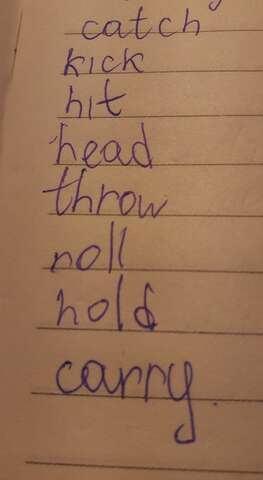 catch
kick
hit
head
throw
roll
hold
carry.